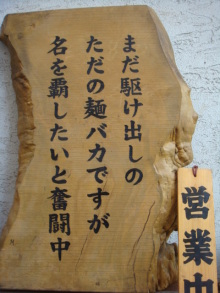 まだ駆け出しの
ただの麺バカですが
名を覇したいと奮闘中
営業中